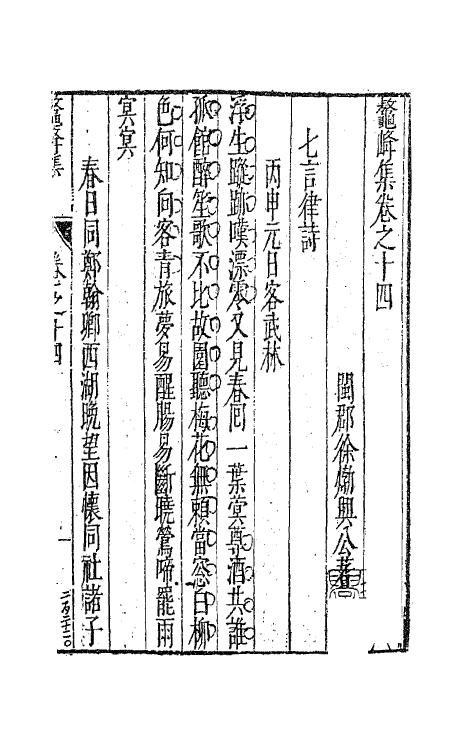 鼇峰集卷之十四
閩郡徐㶿興公著
七言律詩
丙申元日客武林
浮生蹤跡嘆漂零又見春囘一葉蓂尊酒共誰
孤館醉笙歌不比故園聽梅花無賴當窓白柳
色何知向客青旅夢易醒腸易斷曉鶯啼罷雨
冥冥
春日同鄭翰卿西湖晩望因懷同社諸子
鼇峰集
卷之十四
一